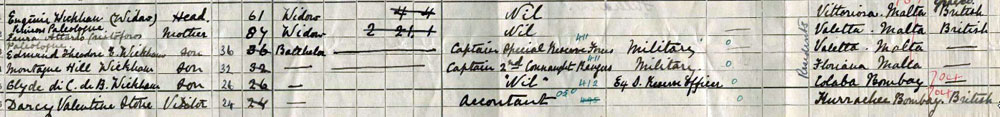 Eugénie Wickham (Widow) Head 61 Widow Nil Vittoriosa Malta British
Paleologue Mother 84 Widow Nil Valetta Malta British
Laura Attardo
Paleologue
Edmund Theodore E. Wickham Son 36 36 Batchelor Captain Special Reserve Military Valetta Malta
Montague Hill Wickham Son 32 32 — Captain 2nd Connaught Rangers Military Floriana Malta
Clyde di C. de B. Wickham Son 26 26 — "Nil" Reserve Officer Colaba Bombay
Darcy Valentine Visitor 24 24 — Accontant Kurrachee Bombay British
Residents